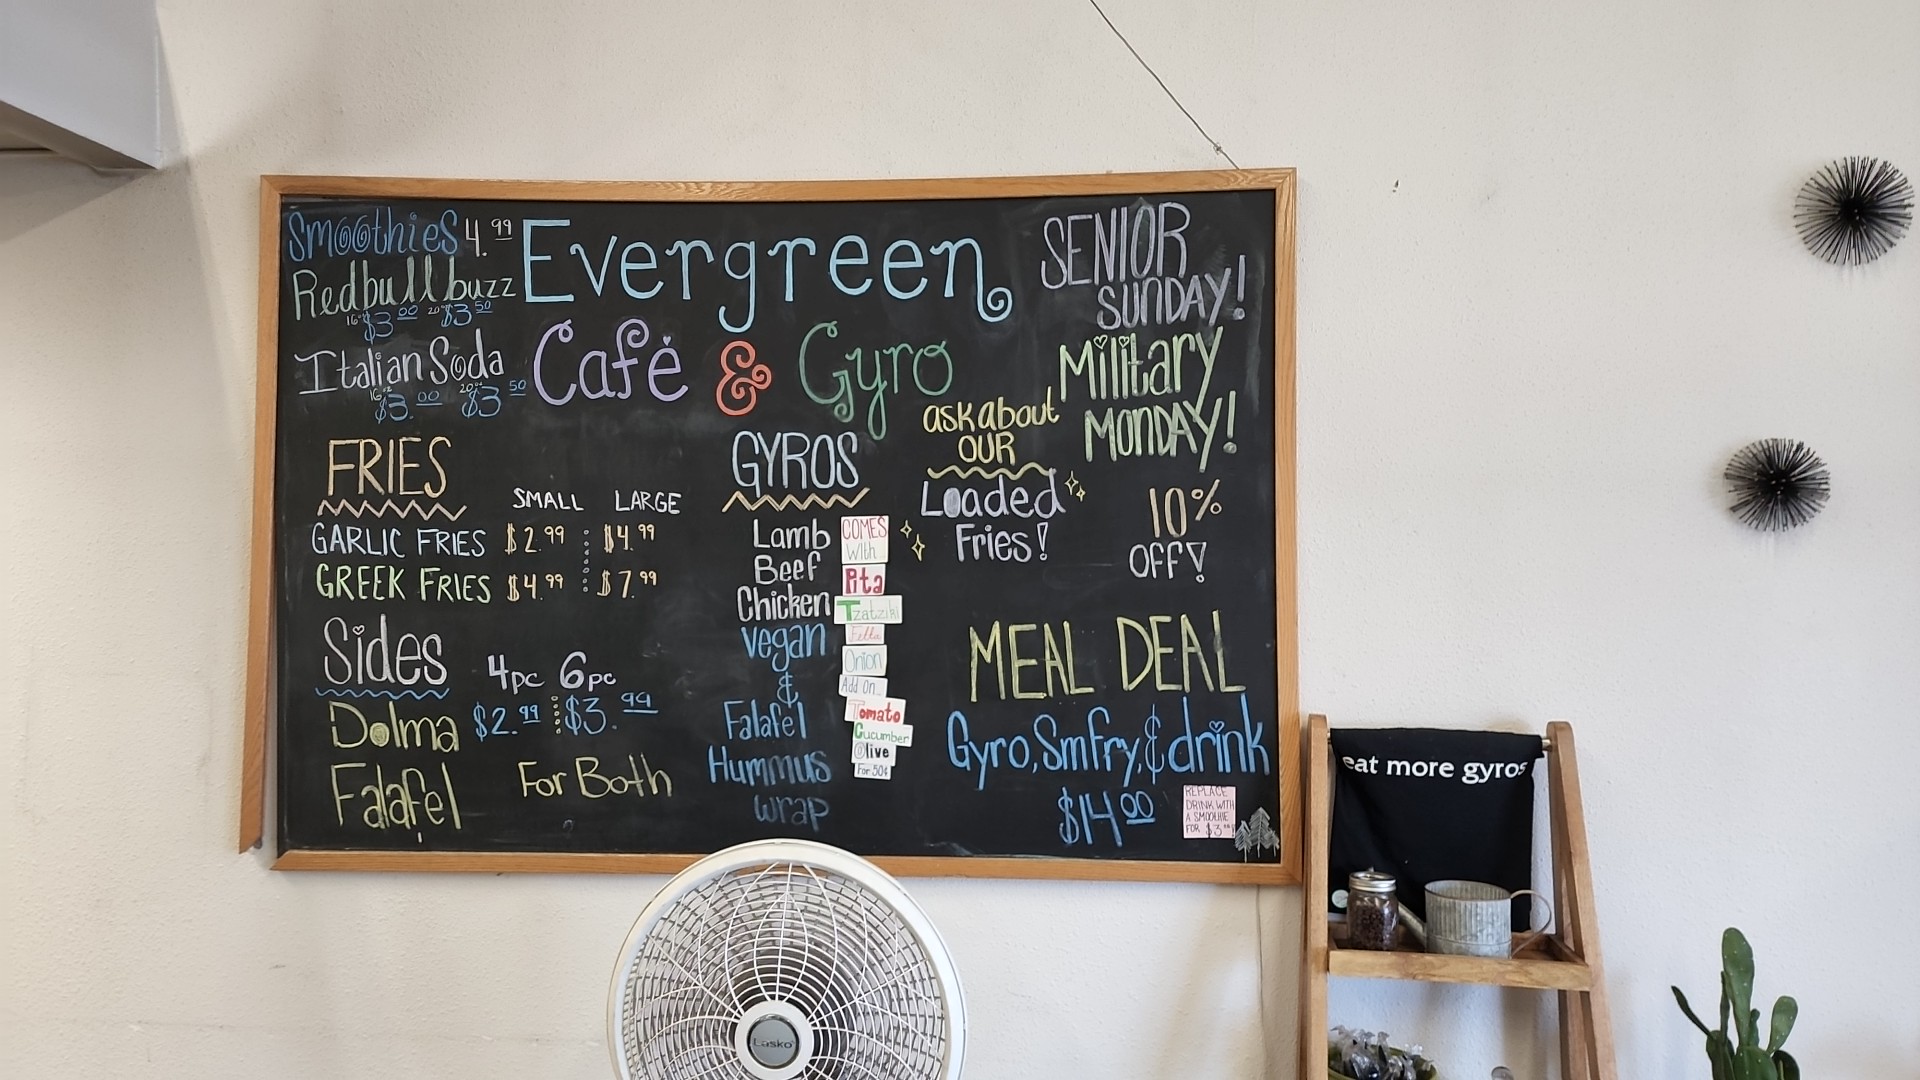 Smoothies 4.99
Redbull buzz
16oz $3.00 20oz $3.50
Italian Soda
16oz $3.00 20oz $3.50
Evergreen
Café & Gyro
SENIOR
SUNDAY!
Military
MONDAY!
10%
OFF!
FRIES
SMALL LARGE
GARLIC FRIES $2.99 $4.99
GREEK FRIES $4.99 $7.99
Sides
4pc 6pc
Dolma $2.99 $3.99
Falafel For Both
GYROS
Lamb
Beef
Chicken
vegan
&
Falafel
Hummus
wrap
COMES
With
Pita
Tzatziki
Fetta
Onion
Add On...
Tomato
Cucumber
Olive
For 50¢
ask about
OUR
Loaded
Fries!
MEAL DEAL
Gyro, Sm Fry, & drink
$14.00
REPLACE
DRINK WITH
A SMOOTHIE
FOR $3
eat more gyros
Lasko